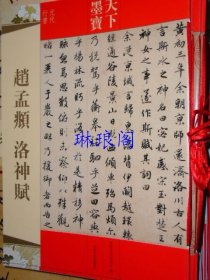 天下墨寶
元代
行書
趙孟頫 洛神賦
黃初三年余朝京師還濟洛川古人有
言斯水之神名曰宓妃感宋玉對楚王
神女之事遂作斯賦其詞曰
余從京域言歸東藩背伊闕越轘轅
經通谷陵景山日既西傾車殆馬煩爾
乃稅駕乎蘅皋秣駟乎芝田容與
乎楊林流眄乎洛川於是精移神
駭忽焉思散俯則未察仰以殊觀
睹一麗人于巖之畔乃援御者而告
琳琅阁